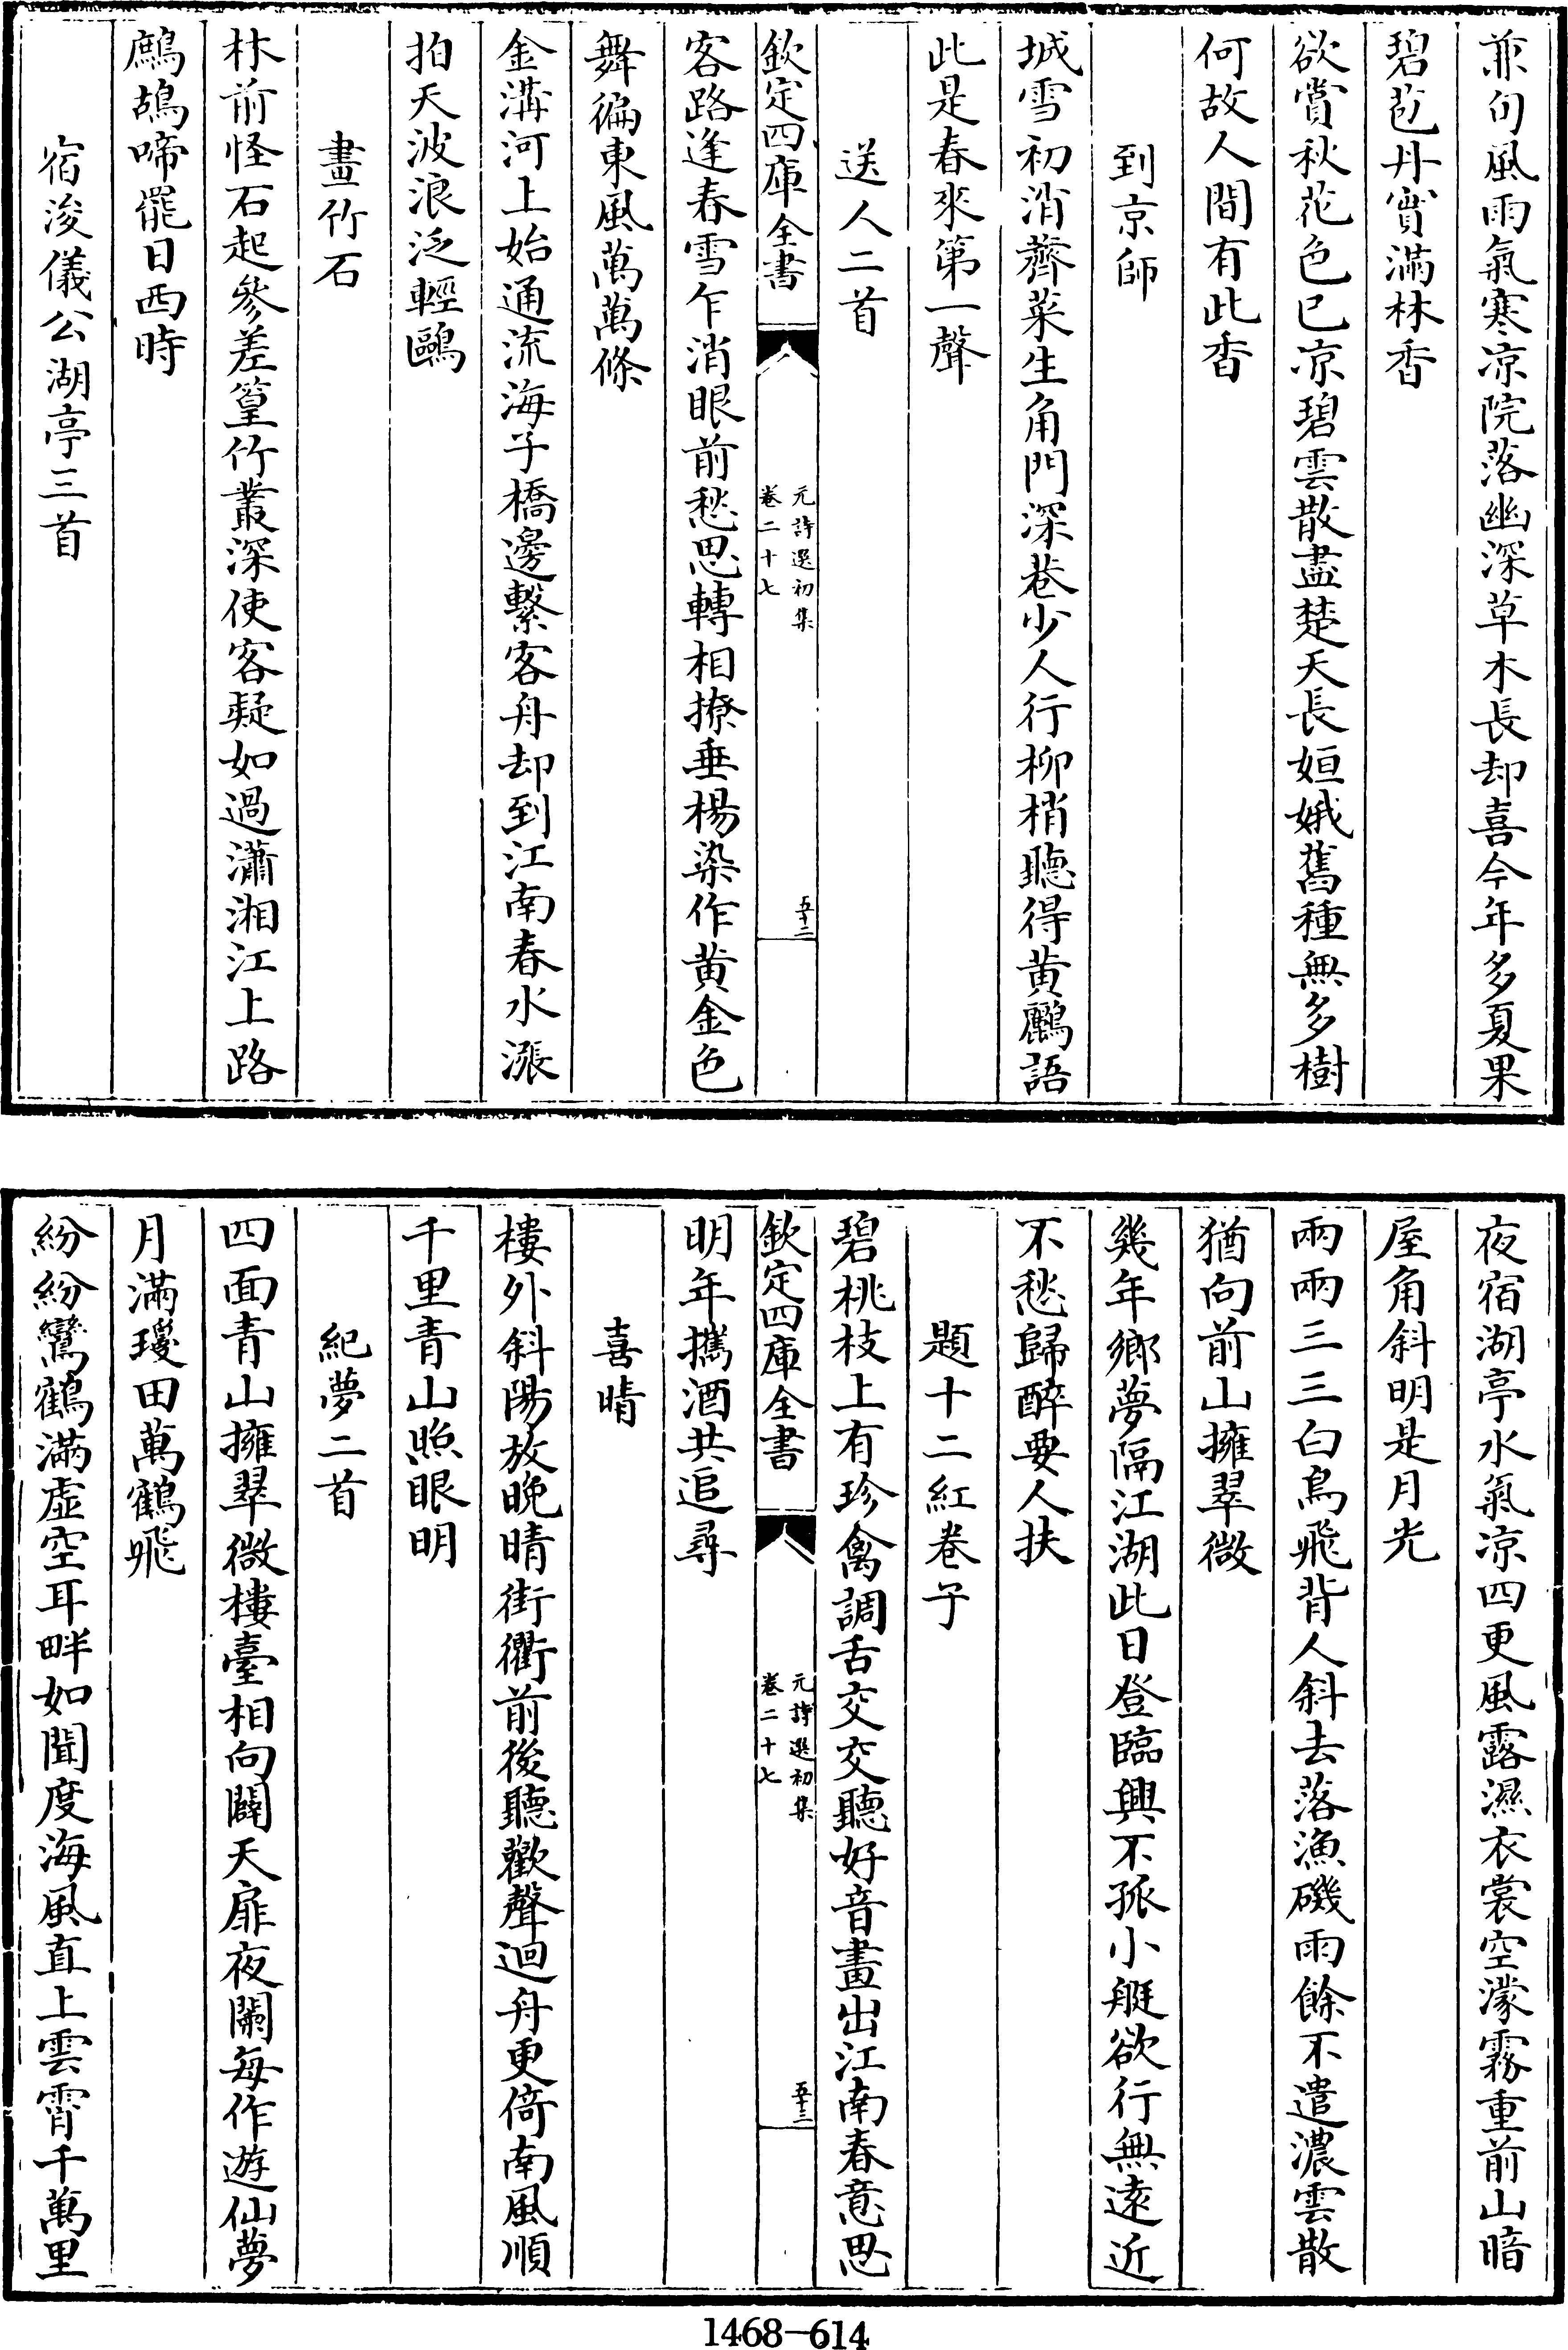 兼旬風雨氣寒凉院落幽深草木長却喜今年多夏果
碧苞丹實滿林香
欲賞秋花色已凉碧雲散盡楚天長姮娥舊種無多樹
何故人間有此香
到京師
城雪初消薺菜生角門深巷少人行柳梢聽得黄鸝語
此是春來第一聲
送人二首
欽定四庫全書
元詩選初集
卷二十七
五十二
客路逢春雪乍消眼前愁思轉相撩垂楊染作黄金色
舞徧東風萬萬條
金溝河上始通流海子橋邊繫客舟却到江南春水漲
拍天波浪泛輕鷗
畫竹石
林前怪石起參差篁竹叢深使客疑如過瀟湘江上路
鷓鴣啼罷日西時
宿浚儀公湖亭三首
夜宿湖亭水氣凉四更風露濕衣裳空濛霧重前山暗
屋角斜明是月光
兩兩三三白鳥飛背人斜去落漁磯雨餘不遣濃雲散
猶向前山擁翠微
幾年鄉夢隔江湖此日登臨興不孤小艇欲行無遠近
不愁歸醉要人扶
題十二紅卷子
碧桃枝上有珍禽調舌交交聽好音畫出江南春意思
欽定四庫全書
元詩選初集
卷二十七
五十三
明年攜酒共追尋
喜晴
樓外斜陽放晚晴街衢前後聽歡聲迴舟更倚南風順
千里青山照眼明
紀夢二首
四面青山擁翠微樓臺相向闢天扉夜闌每作遊仙夢
月滿瓊田萬鶴飛
紛紛鸞鶴滿虛空耳畔如聞度海風直上雲霄千萬里
1468—614